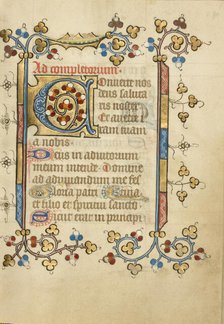 Ad completorium
Conuerte nos
deus saluta
ris noster
Et auerte i
ram tuam
a nobis
Deus in adiutorium
meum intende Domine
ad adiuuandum me fes
Gloria patri
et filio et spiritui sancto
Sicut erat in principi